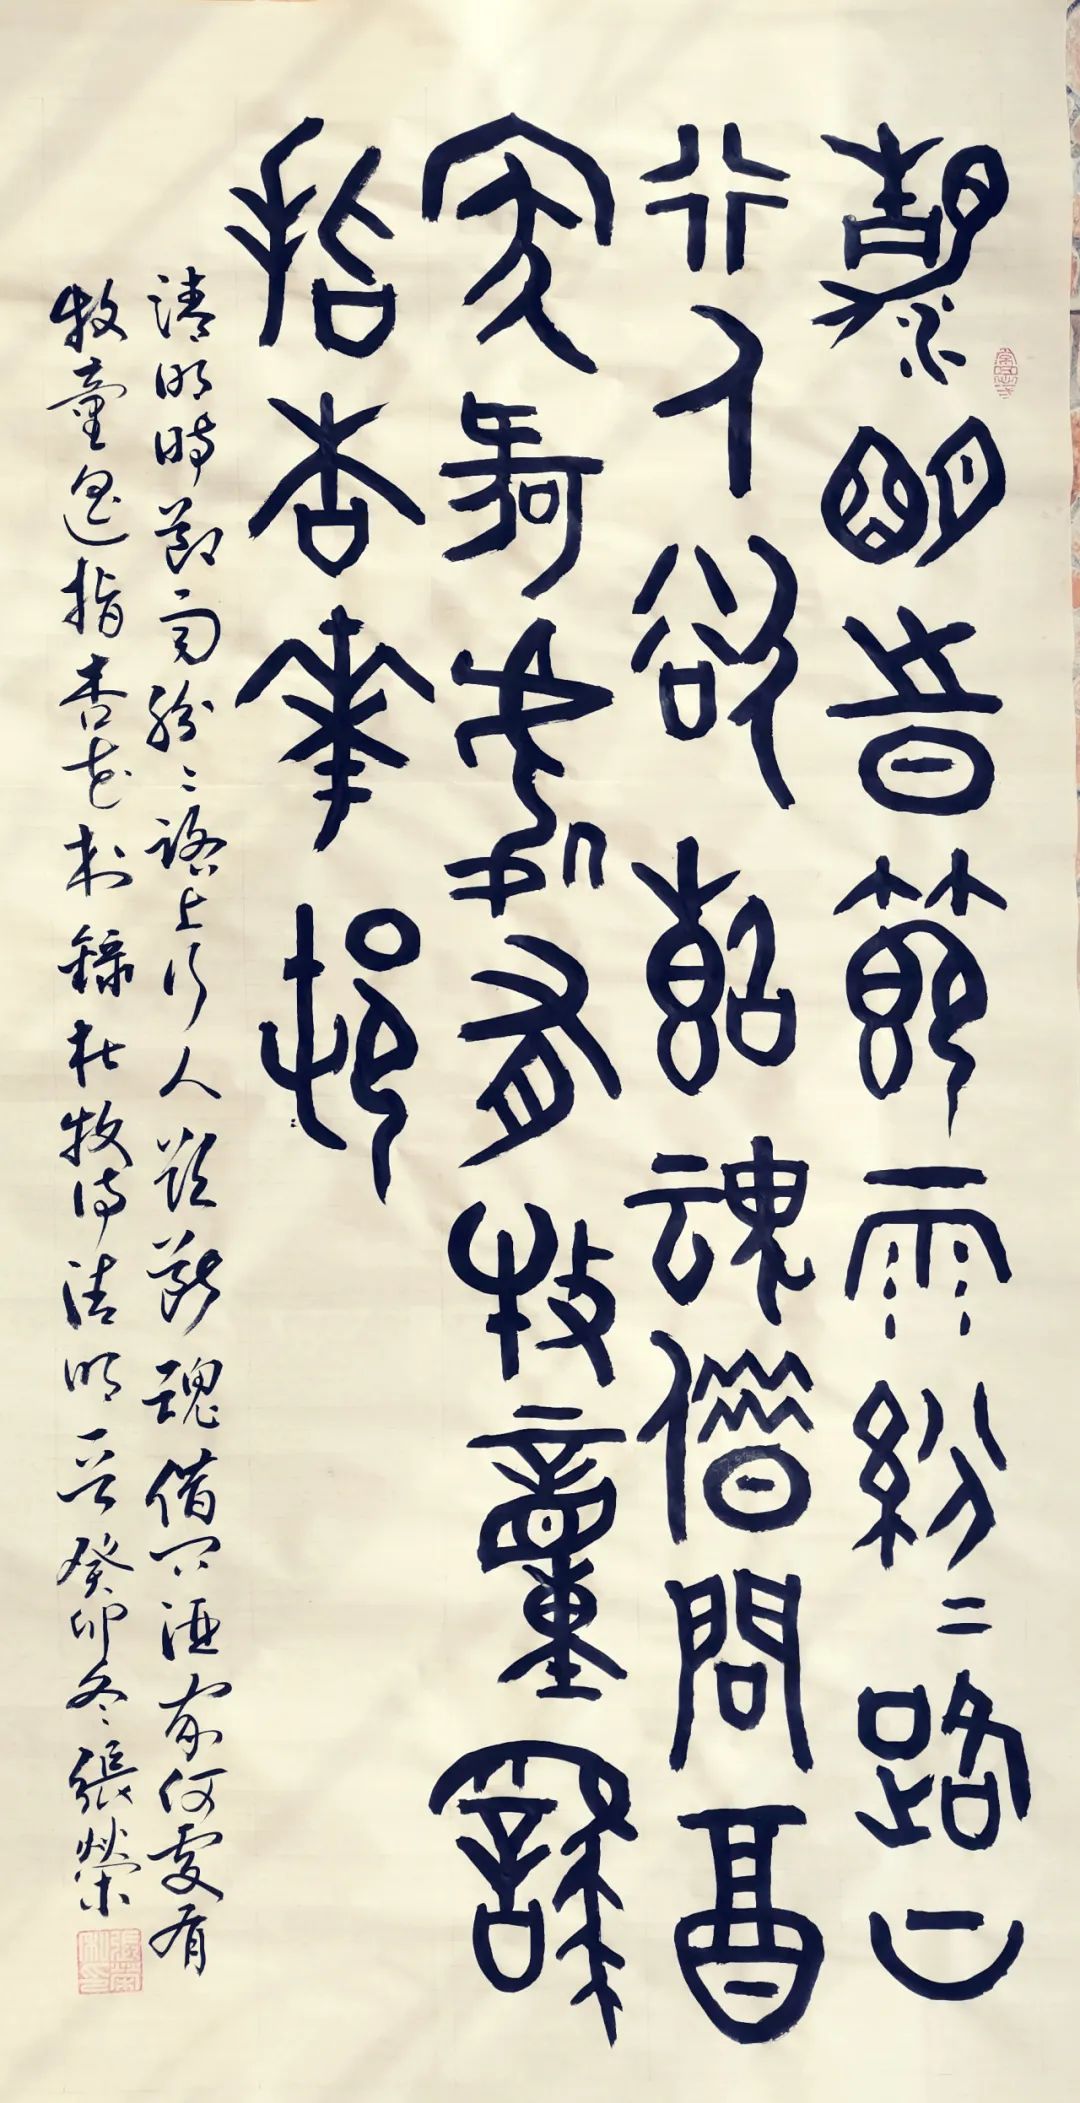 清明旹節雨紛二路上
行人欲斷魂借問酉
家何處有牧童謠
指杏華邨
清明時節雨紛二路上行人欲斷魂借問酒家何處有
牧童遙指杏花村錄杜牧詩清明一首癸卯冬張榮